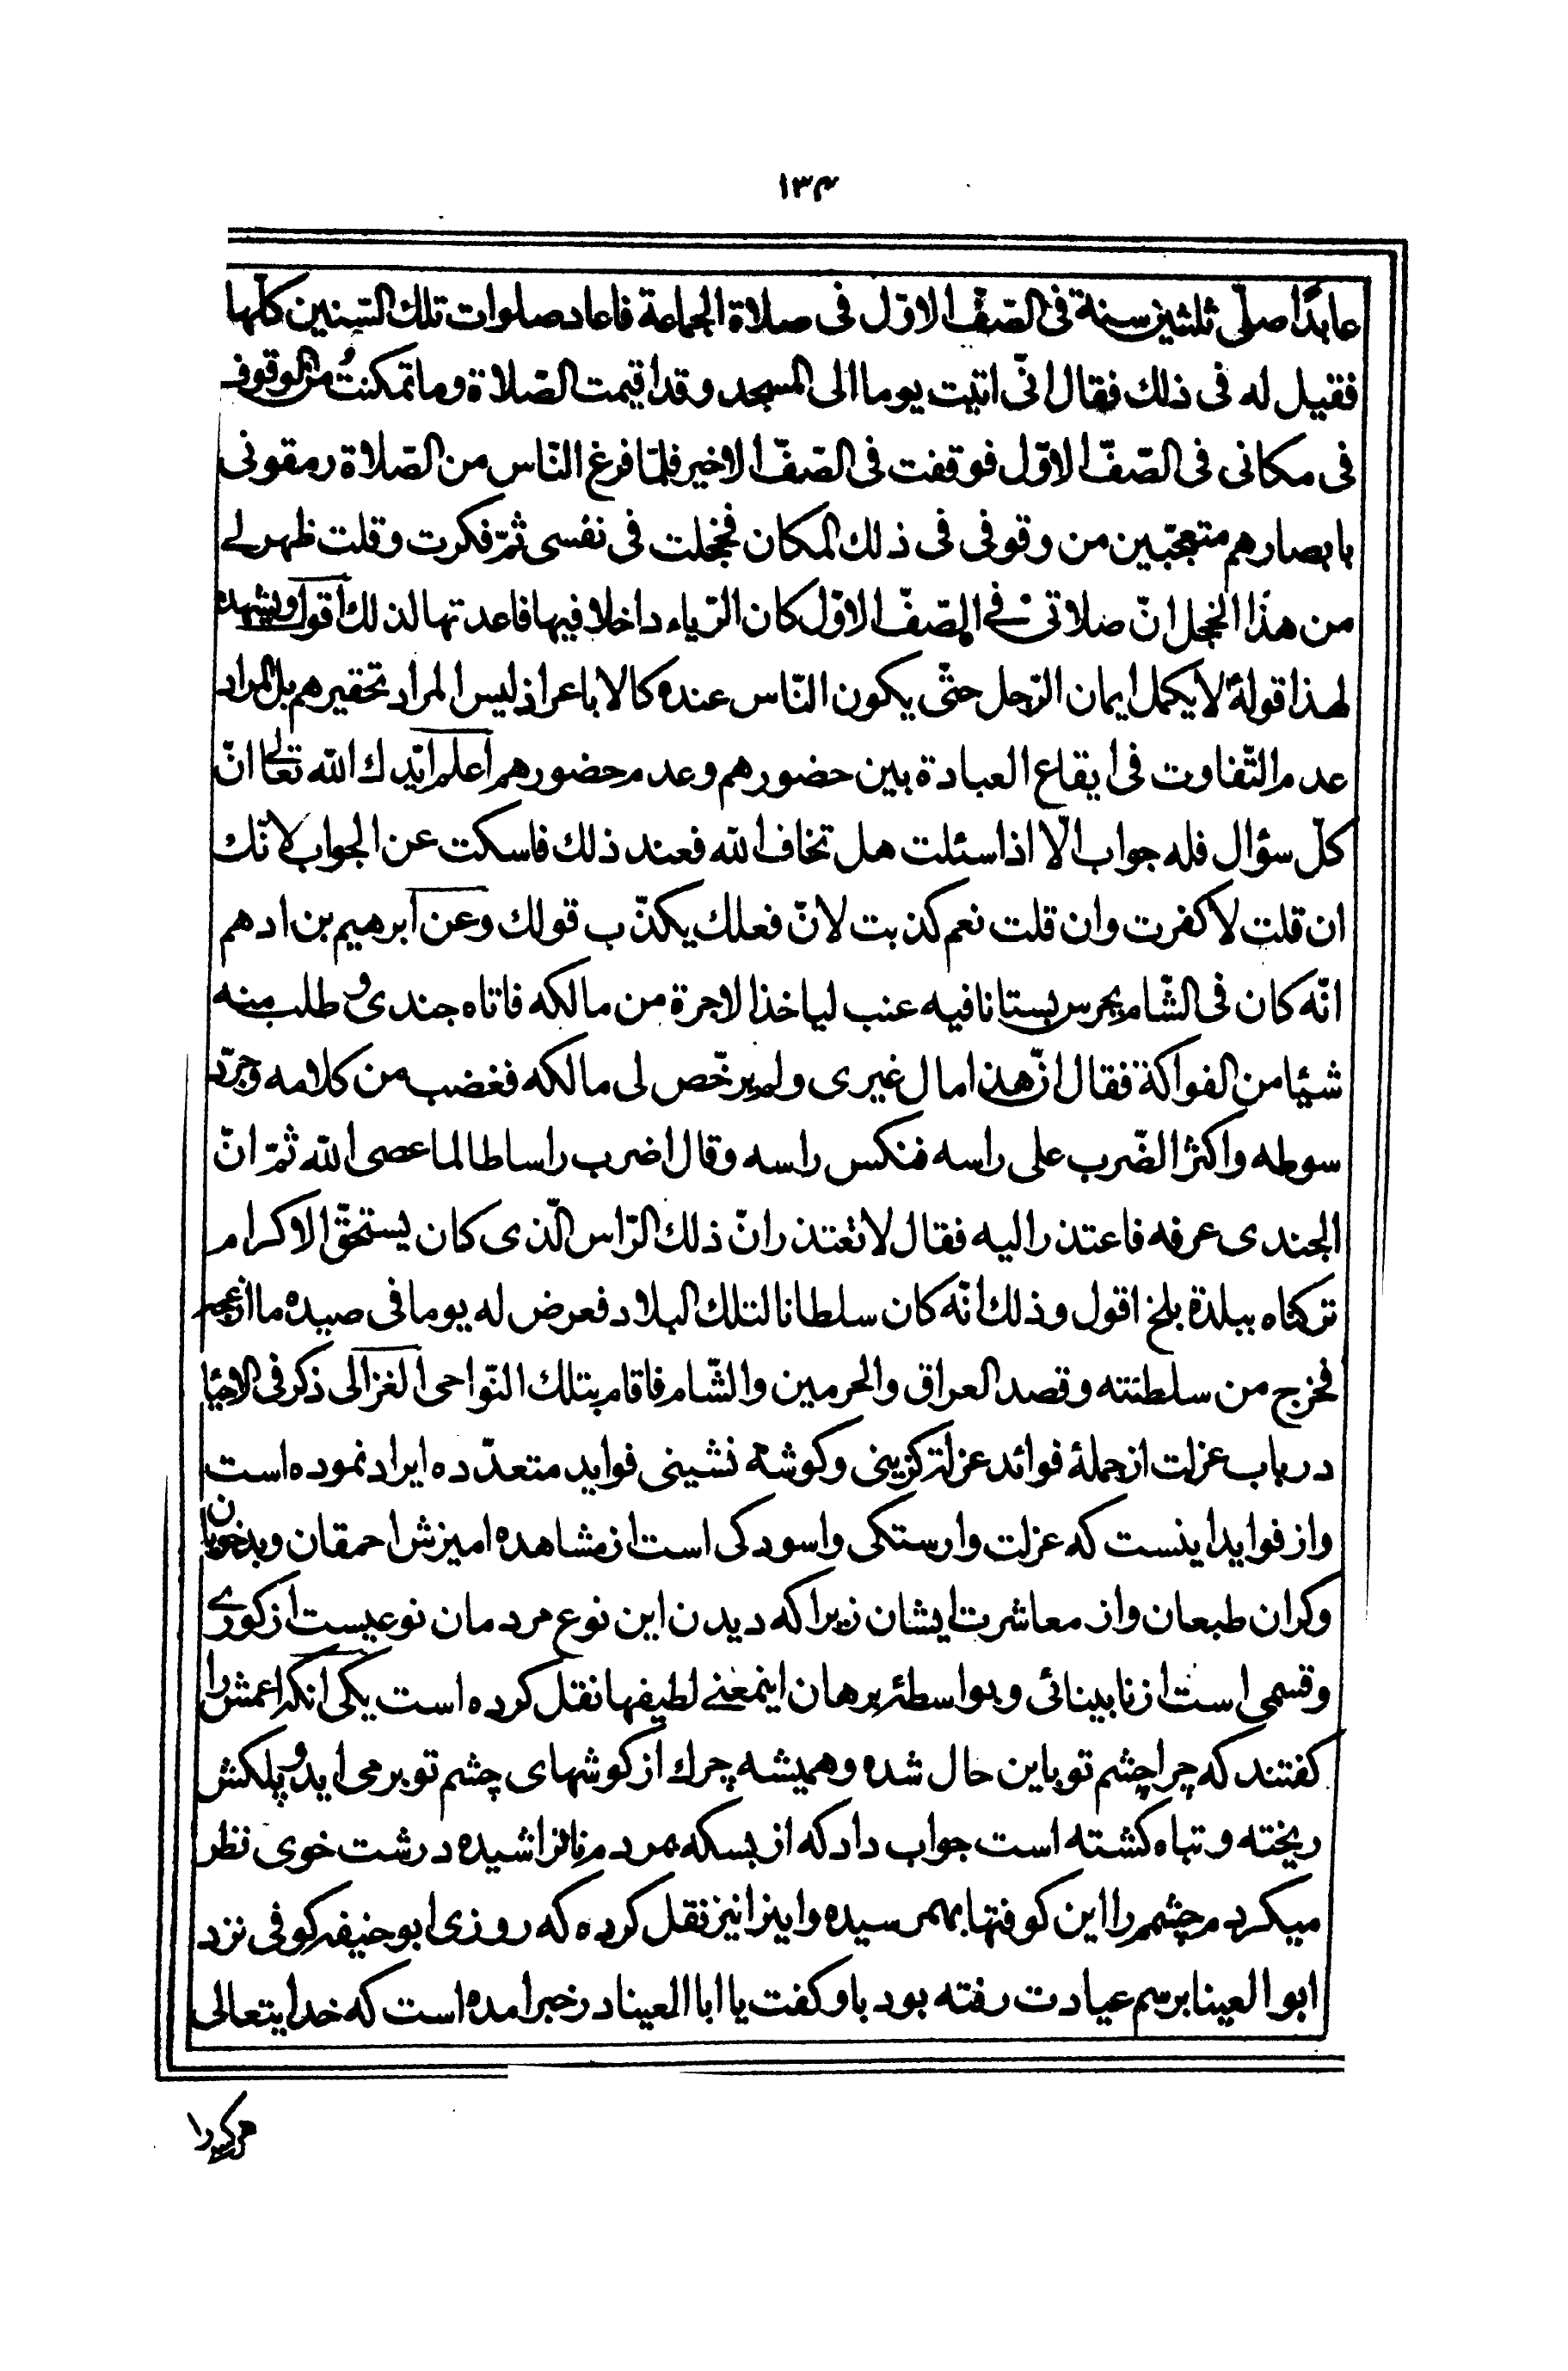 ١٣٤
عابدًا صلّى ثلثين سنة فى الصّفّ الاوّل فى صلاة الجماعة فاعاد صلوات تلك السّنين كلّها
فقيل له فى ذلك فقال انّى اتيت يوما الى المسجد وقد اقيمت الصّلاة وما تمكنتُ من الوقوف
فى مكانى فى الصّفّ الاوّل فوقفت فى الصّفّ الاخير فلمّا فرغ النّاس من الصّلاة رمقونى
بابصارهم متعجّبين من وقوفى فى ذلك المكان فخجلت فى نفسى ثمّ فكرت وقلت ظهر لى
من هذا الخجل انّ صلاتى فى الصّفّ الاوّل كان الرّياء داخلا فيها فاعدتها لذلك اقول ويشهد
لهذا قوله لا يكمل ايمان الرّجل حتّى يكون النّاس عنده كالاباعر اذ ليس المراد تحقيرهم بل المراد
عدم التّفاوت فى ايقاع العبادة بين حضورهم وعدم حضورهم اعلم ايّدك الله تعالى انّ
كلّ سؤال فله جواب الّا اذا سئلت هل تخاف الله فعند ذلك فاسكت عن الجواب لانّك
ان قلت لا كفرت وان قلت نعم كذبت لانّ فعلك يكذّب قولك وعن ابرهيم بن ادهم
انّه كان فى الشّام يحرس بستانا فيه عنب لياخذ الاجرة من مالكه فاتاه جندى وطلب منه
شيئا من الفواكة فقال انّ هذا مال غيرى ولم يرخّص لى مالكه فغضب من كلامه وجرّد
سوطه واكثر الضّرب على راسه فنكس راسه وقال اضرب راسا طالما عصى الله ثمّ انّ
الجندى عرفه فاعتذر اليه فقال لا تعتذر انّ ذلك الرّاس الّذى كان يستحقّ الاكرام
تركناه ببلدة بلخ اقول وذلك انّه كان سلطانا لتلك البلاد فعرض له يوما فى صيده ما ازعجه
فخرج من سلطنته وقصد العراق والحرمين والشّام فاقام بتلك النّواحى الغزالى ذكر فى الاحيا
در باب عزلت از جملهٔ فوائد عزلت كزينى وكوشه نشينى فوايد متعدّده ايراد نموده است
واز فوايد اينست كه عزلت وارستكى واسودكى است از مشاهده اميزش احمقان وبدخويان
وكران طبعان واز معاشرت ايشان زيرا كه ديدن اين نوع مردمان نوعيست از كورى
وقسمى است از نابينائى وبواسطهٔ برهان اينمعنى لطيفها نقل كرده است يكى انكه اعمش را
كفتند كه چرا چشم تو باين حال شده وهميشه چرك از كوشهاى چشم تو برمى ايد و پلكش
ريخته وتباه كشته است جواب داد كه از بسكه بمردم ناتراشيده درشت خوى نظر
ميكردم چشمم را اين كوفتها بهمرسيده واينرا نيز نقل كرده كه روزى ابو حنيفه كوفى نزد
ابو العينا برسم عيادت رفته بود باو كفت يا ابا العينا در خبر امده است كه خدايتعالى
هركس را